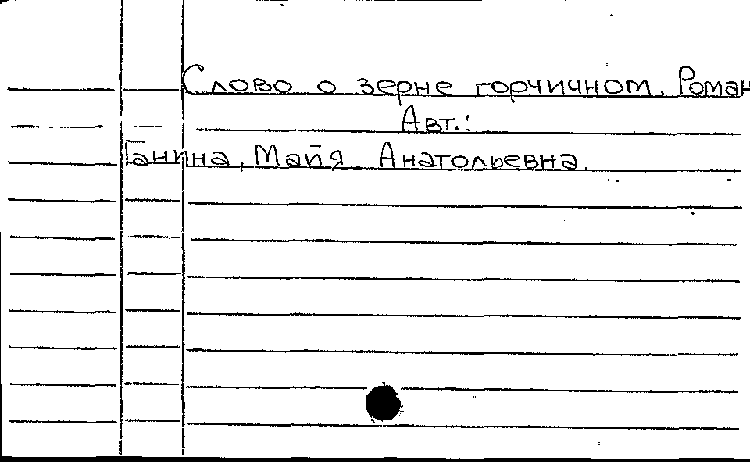 Слово о зерне горчичном. Роман
Авт.:
Ганина, Майя Анатольевна.